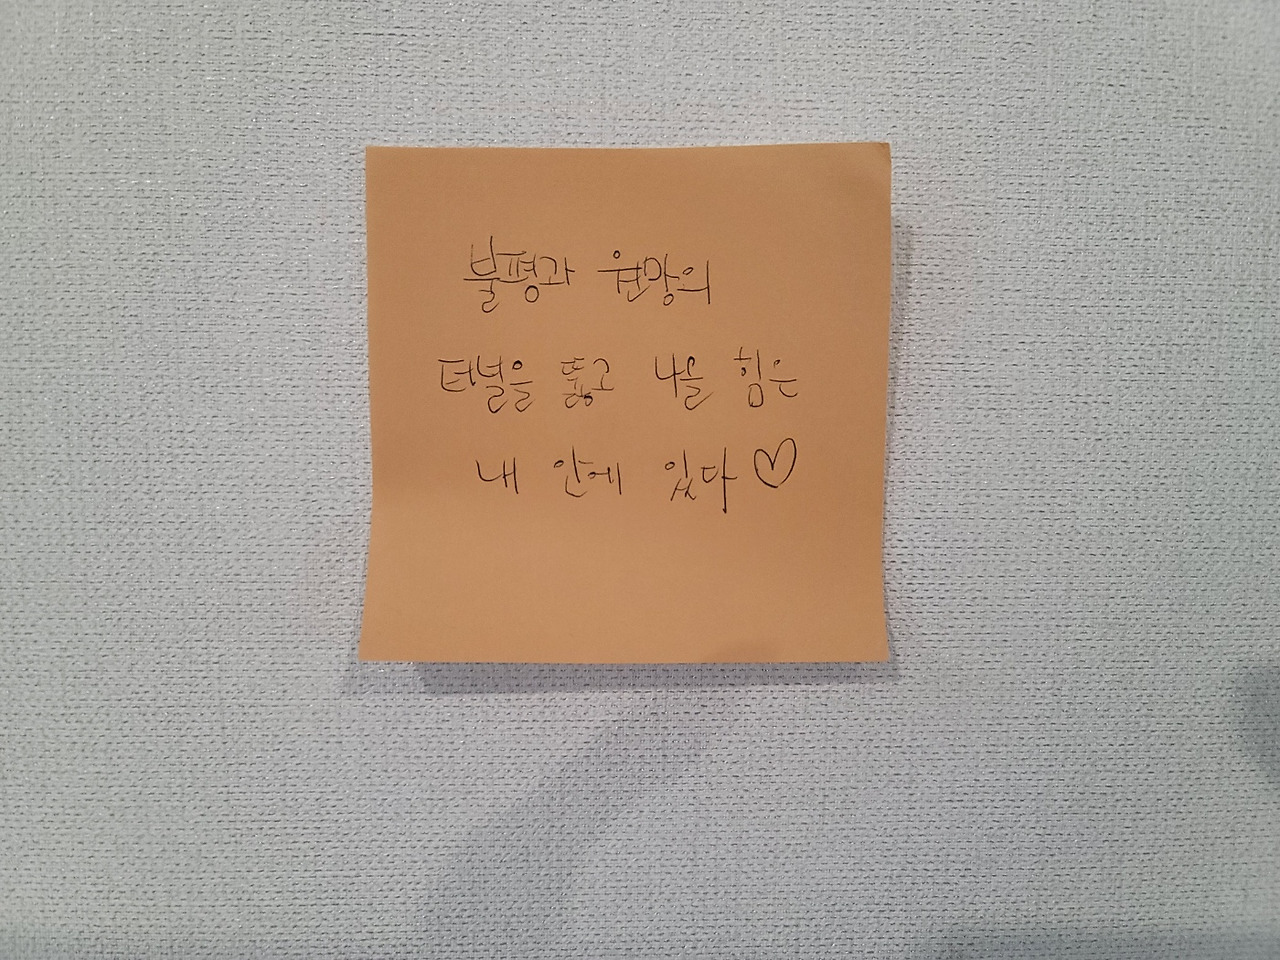 불평과 원망의
터널을 뚫고 나올 힘은
내 안에 있다♡